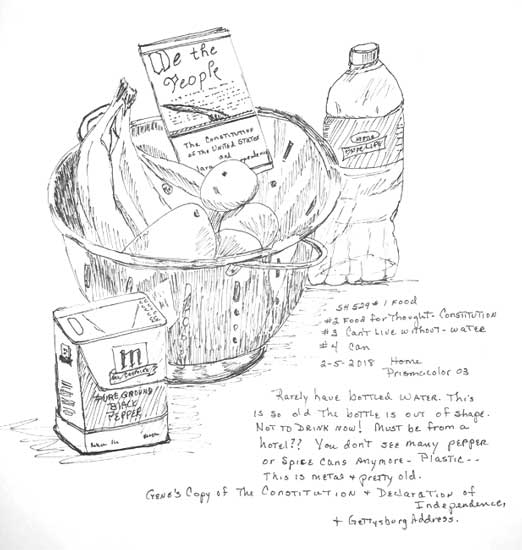 We the
People
The Constitution
of the United States
and
PURE LIFE
m
PURE GROUND
BLACK
PEPPER
SH 529 #1 Food
#2 Food for Thought - Constitution
#3 Can't Live without - water
#4 Can
2-5-2018 Home
Prismacolor 03
Rarely have bottled water. This
is so old the bottle is out of shape.
Not to drink now! Must be from a
hotel?? You don't see many pepper
or spice cans anymore - Plastic --
This is metal & pretty old.
Gene's Copy of The Constitution & Declaration of
Independence,
& Gettysburg Address.